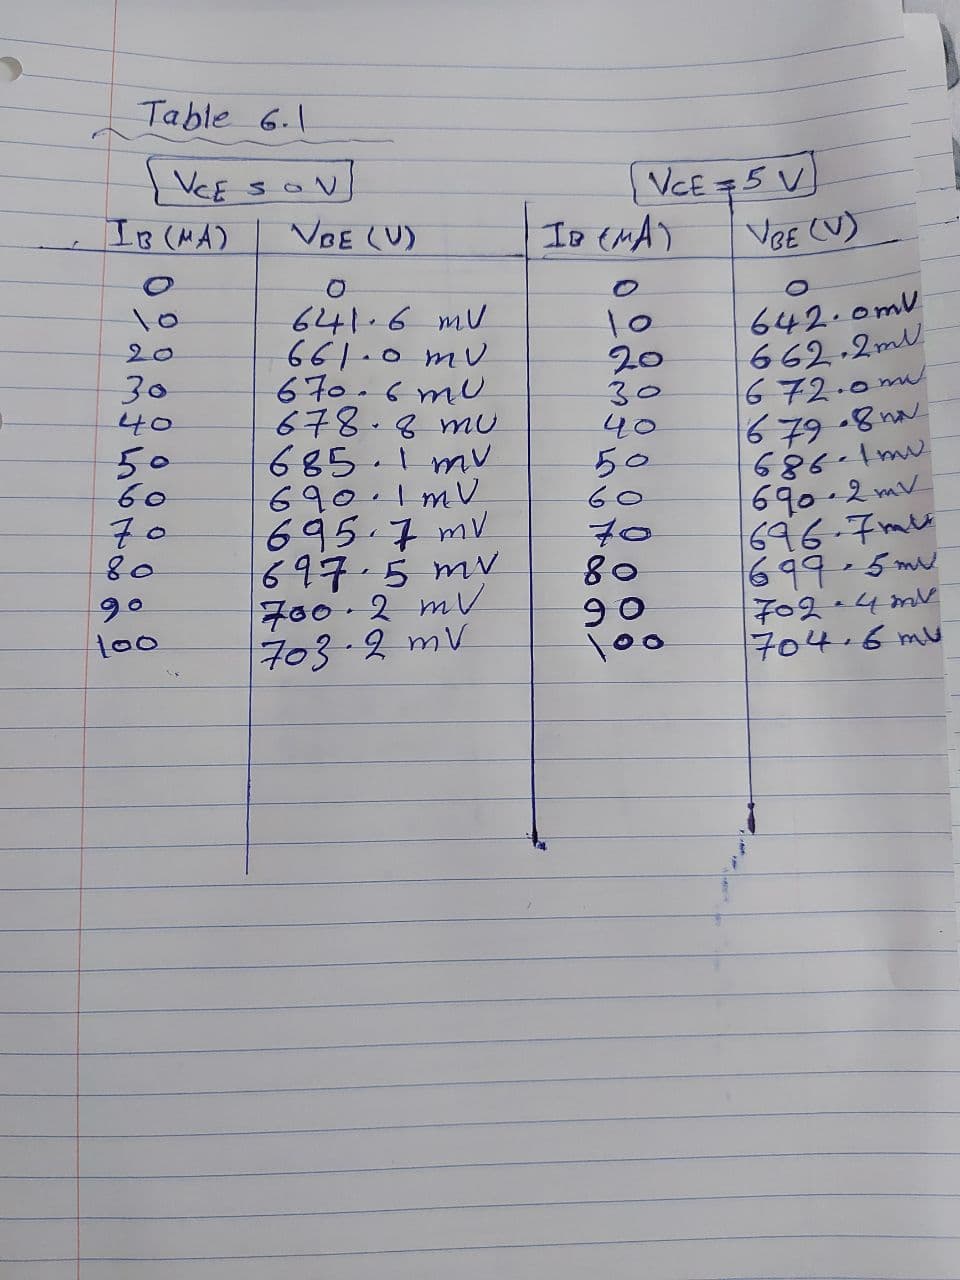 Table 6.1
VCE = 0 V VCE = 5 V
IB (μA) VBE (V) IB (μA) VBE (V)
0 0 0 0
10 641.6 mV 10 642.0 mV
20 661.0 mV 20 662.2 mV
30 670.6 mV 30 672.0 mV
40 678.8 mV 40 679.8 mV
50 685.1 mV 50 686.1 mV
60 690.1 mV 60 690.2 mV
70 695.7 mV 70 696.7 mV
80 697.5 mV 80 699.5 mV
90 700.2 mV 90 702.4 mV
100 703.2 mV 100 704.6 mV